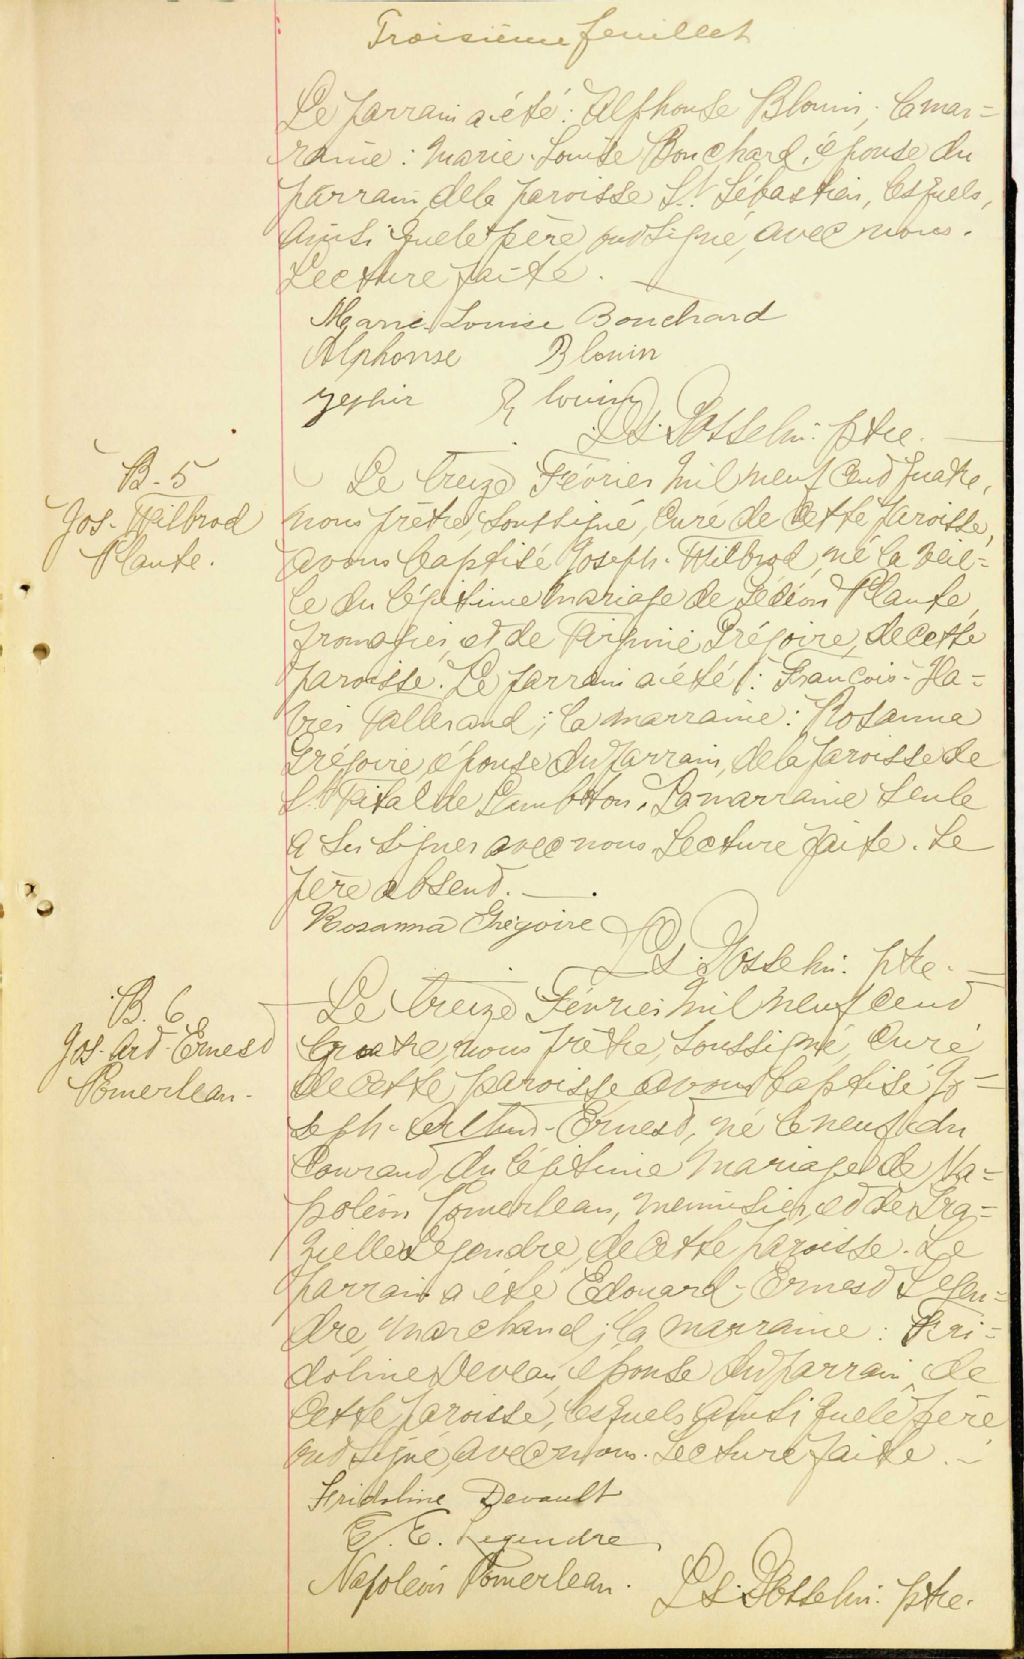 Troisième feuillet
Le parrain a été : Alphonse Blouin ; la mar=
raine : Marie-Louise Bouchard, épouse du
parrain, de la paroisse St. Sébastien, lesquels,
ainsi que le père, ont signé, avec nous.
Lecture faite.
Marie-Louise Bouchard
Alphonse Blouin
Zephir Blouin
Ls. Gosselin. ptre.
B. 5
Jos. Wilbrod
Plante.
Le treize Février mil neuf cent quatre,
nous prêtre, soussigné, curé de cette paroisse,
avons baptisé Joseph-Wilbrod, né la veil=
le du légitime mariage de Gédéon Plante,
fromager, et de Virginie Grégoire, de cette
paroisse. Le parrain a été : François-Xa=
vier Vallerand ; la marraine : Rosanna
Grégoire, épouse du parrain, de la paroisse de
St. Vital de Lambton. La marraine seule
a su signer avec nous. Lecture faite. Le
père absent.
Rosanna Grégoire
Ls. Gosselin. ptre.
B. 6
Jos. Art-Ernest
Pomerleau.
Le treize Février mil neuf cent
quatre, nous prêtre, soussigné, curé
de cette paroisse avons baptisé Jo=
seph-Arthur-Ernest, né le neuf du
courant, du légitime mariage de Na=
poléon Pomerleau, menuisier, et de Gra=
zielle Legendre, de cette paroisse. Le
parrain a été Edouard-Ernest Legen=
dre, marchand ; la marraine : Fri=
doline Deveau, épouse du parrain, de
cette paroisse, lesquels ainsi que le père
ont signé, avec nous. Lecture faite.
Fridoline Devault
E. E. Legendre
Napoléon Pomerleau.
Ls. Gosselin. ptre.